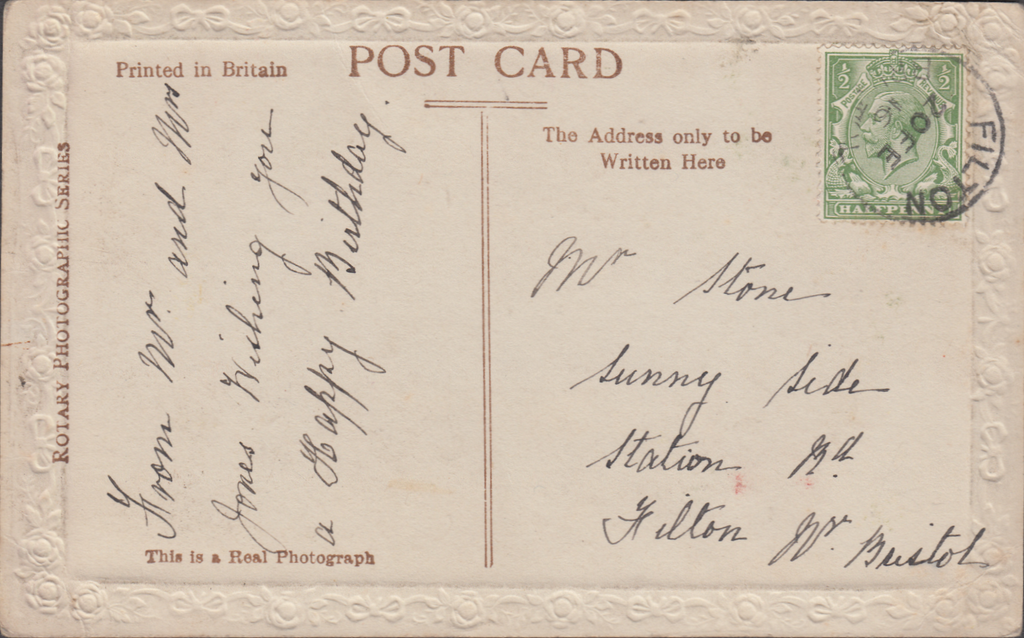 POST CARD
Printed in Britain
The Address only to be
Written Here
ROTARY PHOTOGRAPHIC SERIES
From Mr. and Mrs
Jones Wishing you
a Happy Birthday.
This is a Real Photograph
½ ½
HALFPENNY
FILTON
20 FE
16
Mr Stone
Sunny Side
Station Rd
Filton Nr. Bristol